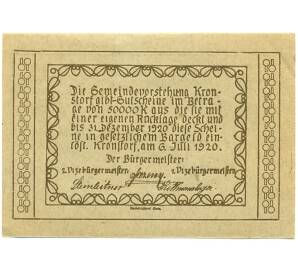 Die Gemeindevorstehung Kron-
storf gibt Gutscheine im Betra-
ge von 50000 K aus die sie mit
einer eigenen Rücklage deckt und
bis 31 Dezember 1920 diese Schei-
ne in gesetzlichem Bargeld ein-
löst. Kronstorf, am 6. Juli 1920.
Der Bürgermeister:
2. Vizebürgermeister 1. Vizebürgermeister